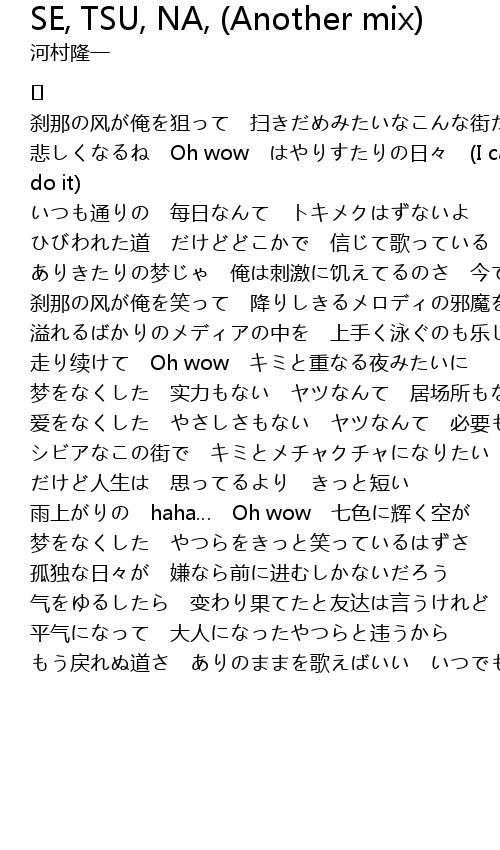 SE, TSU, NA, (Another mix)
河村隆一
[]
刹那の风が俺を狙って　扫きだめみたいなこんな街
悲しくなるね　Oh wow　はやりすたりの日々　(I
do it)
いつも通りの　毎日なんて　トキメクはずないよ
ひびわれた道　だけどどこかで　信じて歌っている
ありきたりの梦じゃ　俺は刺激に饥えてるのさ　今
刹那の风が俺を笑って　降りしきるメロディの邪魔
溢れるばかりのメディアの中を　上手く泳ぐのも乐
走り续けて　Oh wow　キミと重なる夜みたいに
梦をなくした　实力もない　ヤツなんて　居场所も
爱をなくした　やさしさもない　ヤツなんて　必要
シビアなこの街で　キミとメチャクチャになりたい
だけど人生は　思ってるより　きっと短い
雨上がりの　haha...　Oh wow　七色に辉く空が
梦をなくした　やつらをきっと笑っているはずさ
孤独な日々が　嫌なら前に进むしかないだろう
气をゆるしたら　变わり果てたと友达は言うけれど
平气になって　大人になったやつらと违うから
もう戻れぬ道さ　ありのままを歌えばいい　いつでも